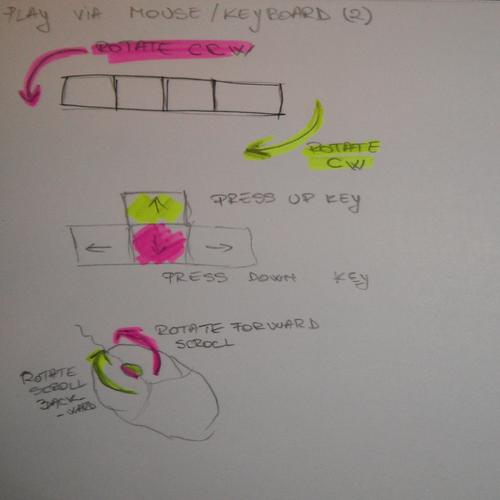 PLAY VIA MOUSE/KEYBOARD (2)
ROTATE CCW
ROTATE
CW
PRESS UP KEY
PRESS DOWN KEY
ROTATE FORWARD
SCROLL
ROTATE
SCROLL
BACK
-WARD